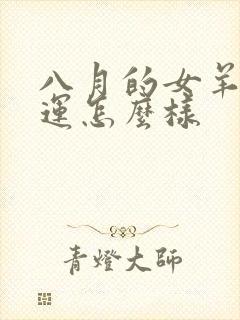 八月的女羊
運怎麼樣
青燈大師